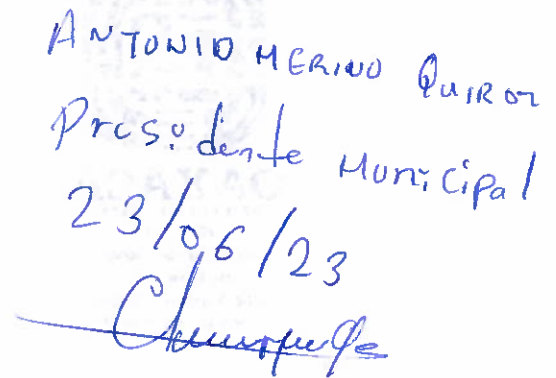 ANTONIO MERINO QUIROZ
Presidente Municipal
23/06/23